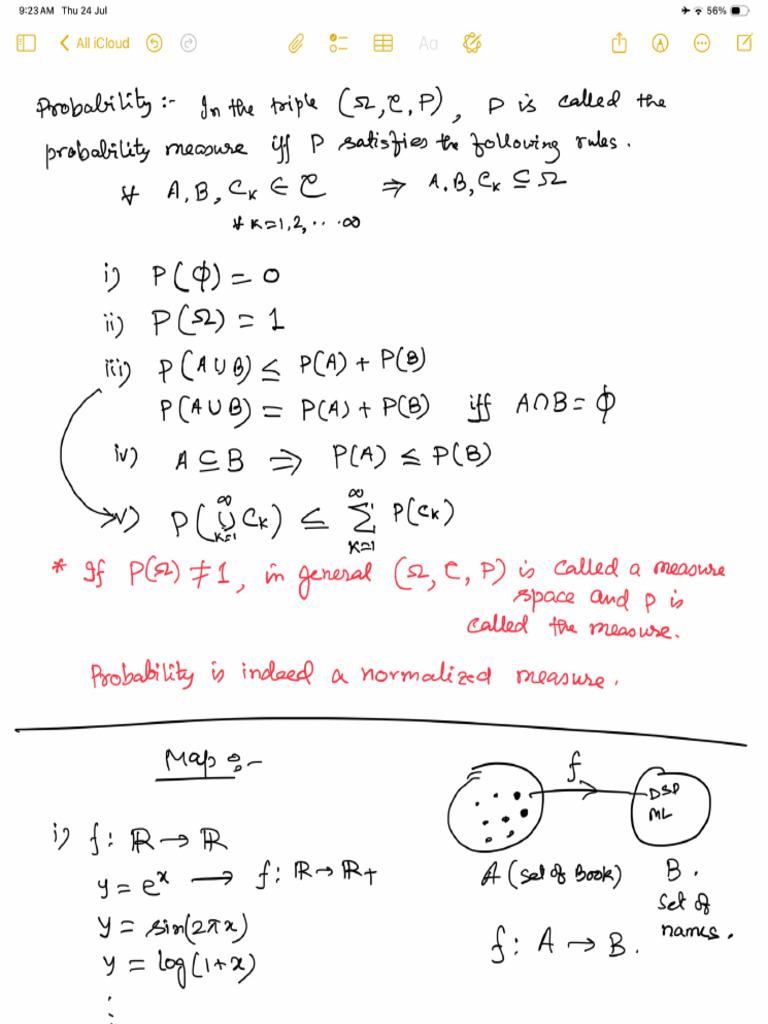 9:23 AM Thu 24 Jul
56%
All iCloud
Aa
Probability :- In the triple (Ω, C, P), P is called the
probability measure iff P satisfies the following rules.
∀ A, B, Cₖ ∈ C ⇒ A, B, Cₖ ⊆ Ω
∀ k=1,2,...∞
i) P(ϕ) = 0
ii) P(Ω) = 1
iii) P(A∪B) ≤ P(A) + P(B)
P(A∪B) = P(A) + P(B) iff A∩B = ϕ
iv) A ⊆ B ⇒ P(A) ≤ P(B)
v) P(∪_{k=1}^{∞} Cₖ) ≤ ∑_{k=1}^{∞} P(Cₖ)
* If P(Ω) ≠ 1, in general (Ω, C, P) is called a measure
space and P is
called the measure.
Probability is indeed a normalized measure.
Map :-
f
DSP
ML
A (set of Book)
B.
set of
names.
f: A → B.
i) f: ℝ → ℝ
y = eˣ → f: ℝ → ℝ+
y = sin(2πx)
y = log(1+x)
⋮